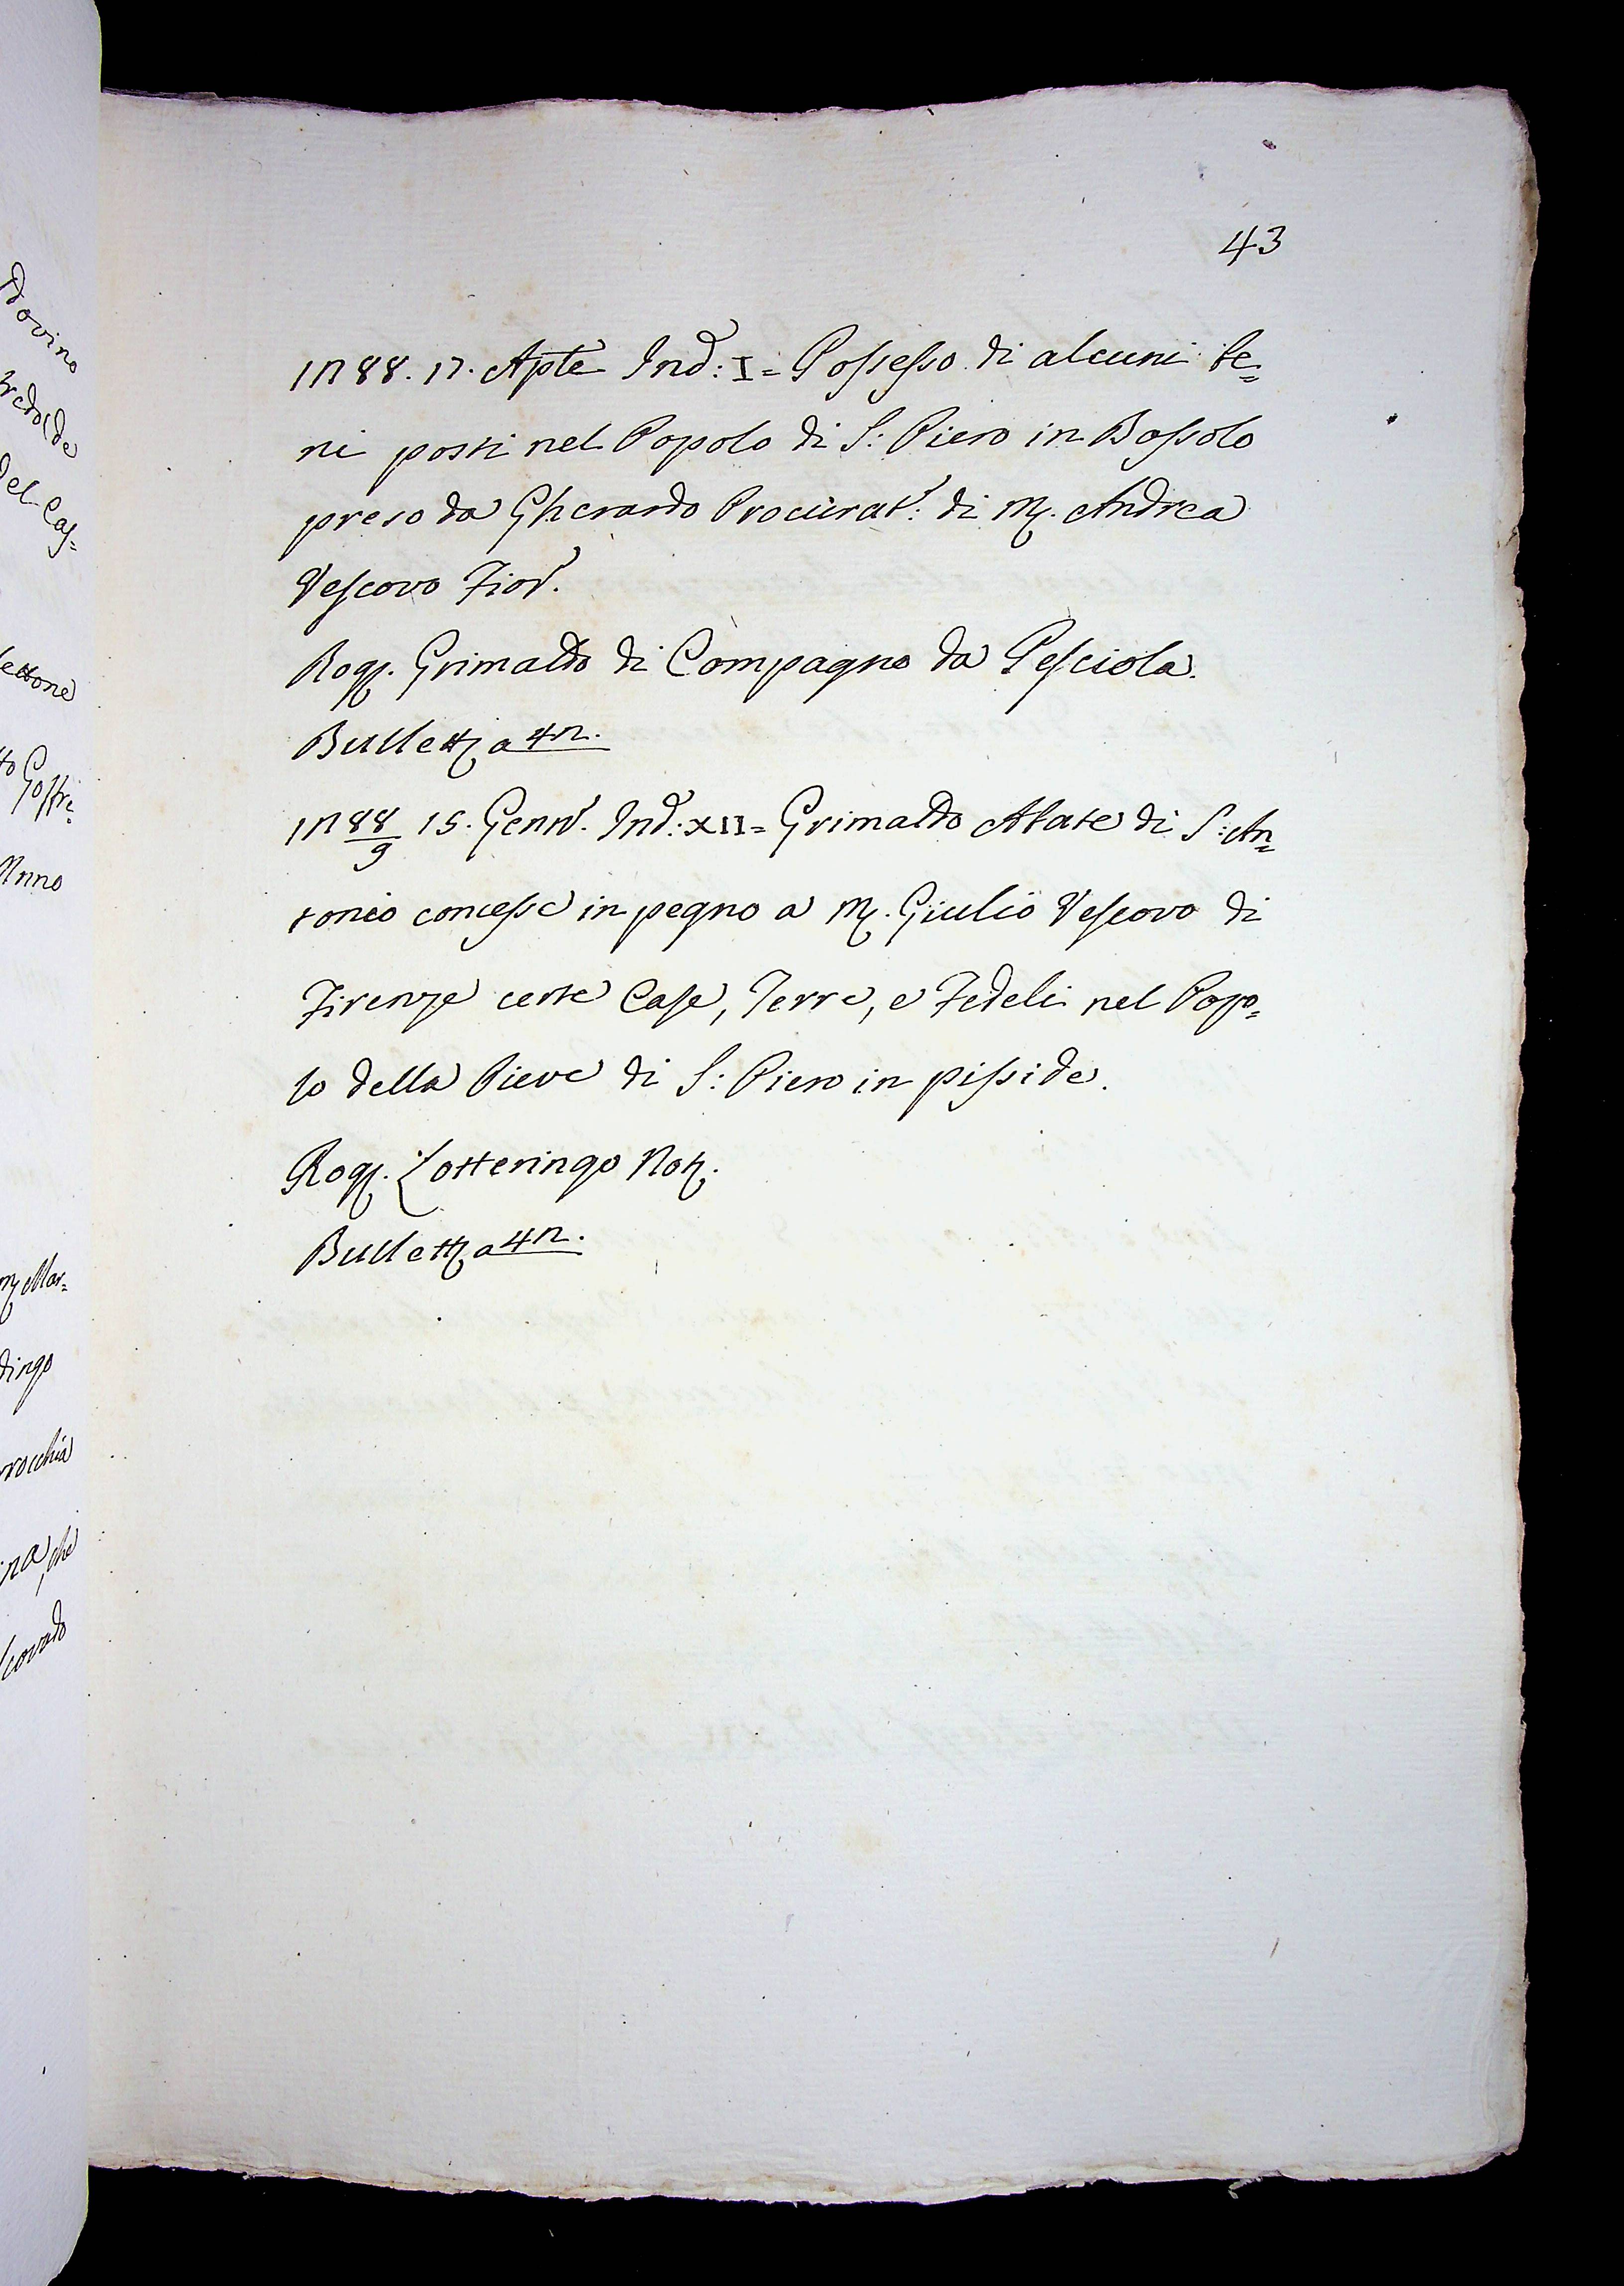 dovino
del Cas=
lettone
to Goffre=
Anno
Mar=
dingo
rrocchia
ina, che
scovado
43
1288. 12. Aple Ind: I = Possesso di alcuni be=
ni posti nel Popolo di S: Piero in Bossolo
preso da Gherardo Procurat: di M. Andrea
Vescovo Fior.
Rog. Grimaldo di Compagno da Pesciola.
Bulletta 42.
1288/9 15. Genn. Ind: XII = Grimaldo Abate di S: An=
tonio concesse in pegno a M. Giulio Vescovo di
Firenze certe Case, Terre, e Fedeli nel Popo=
lo della Pieve di S: Piero in pisside.
Rog. Lotteringo Not.
Bulletta 42.